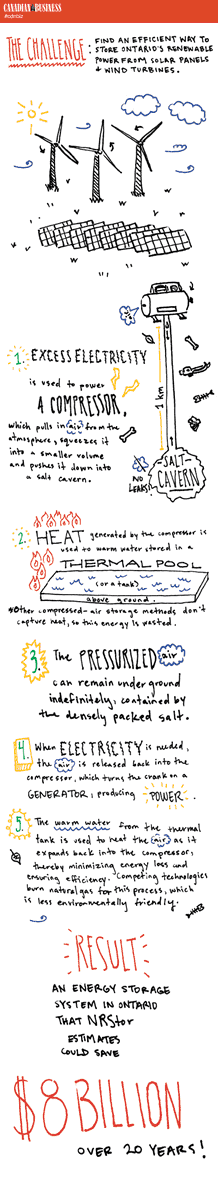 CANADIAN BUSINESS
#cdnbiz
THE CHALLENGE:
FIND AN EFFICIENT WAY TO
STORE ONTARIO'S RENEWABLE
POWER FROM SOLAR PANELS
& WIND TURBINES.
1. EXCESS ELECTRICITY
is used to power
A COMPRESSOR,
which pulls in air from the
atmosphere, squeezes it
into a smaller volume
and pushes it down into
a salt cavern.
1 km
NO
LEAKS!
SALT
CAVERN
2. HEAT generated by the compressor is
used to warm water stored in a
THERMAL POOL
(or a tank)
above ground.
*Other compressed-air storage methods don't
capture heat, so this energy is wasted.
3. The PRESSURIZED air
can remain underground
indefinitely, contained by
the densely packed salt.
4. When ELECTRICITY is needed,
the air is released back into the
compressor, which turns the crank on a
GENERATOR, producing POWER.
5. The warm water from the thermal
tank is used to heat the air as it
expands back into the compressor,
thereby minimizing energy loss and
ensuring efficiency. Competing technologies
burn natural gas for this process, which
is less environmentally friendly.
RESULT
AN ENERGY STORAGE
SYSTEM IN ONTARIO
THAT NRStor
ESTIMATES
COULD SAVE
$8 BILLION
OVER 20 YEARS!